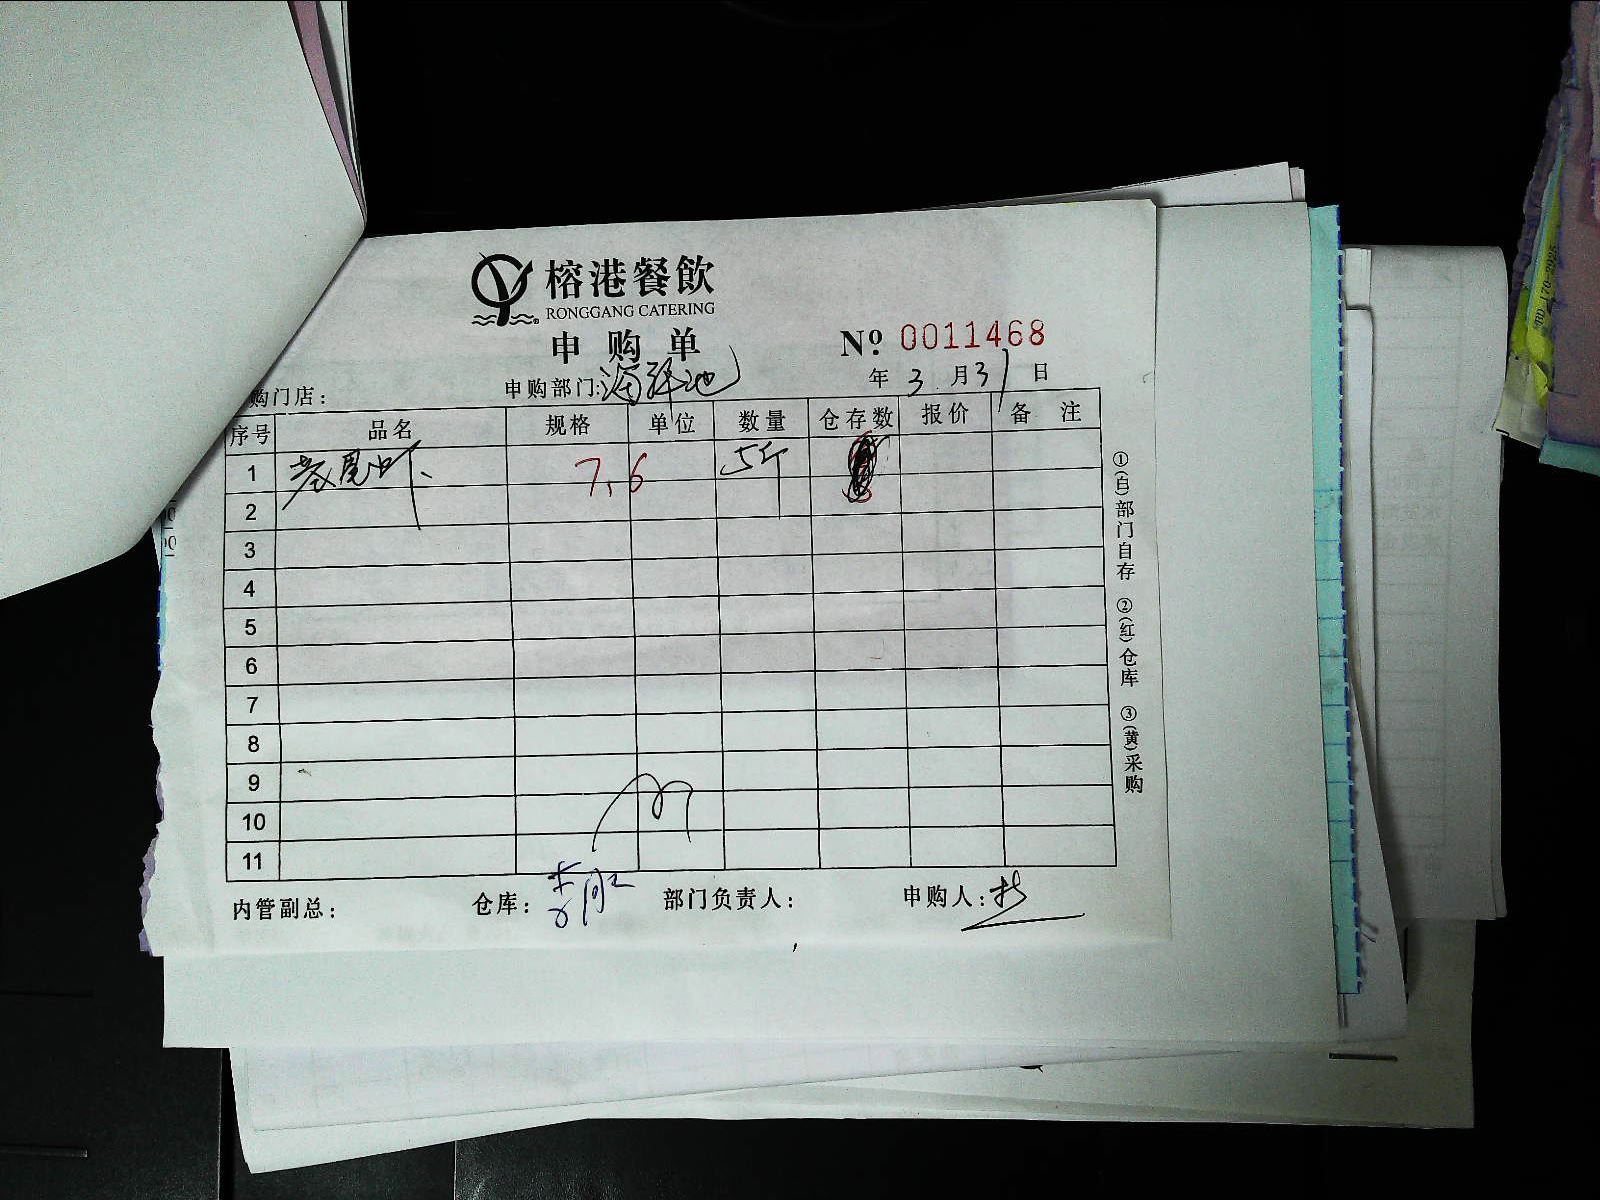 榕港餐飲
RONGGANG CATERING
申购单
№ 0011468
购门店：
申购部门：海鲜池
年 3 月 31 日
序号 品名 规格 单位 数量 仓存数 报价 备注
1 7.6 5斤
2
3
4
5
6
7
8
9
10
11
内管副总：
仓库：
部门负责人：
申购人：
①(白)部门自存 ②(红)仓库 ③(黄)采购